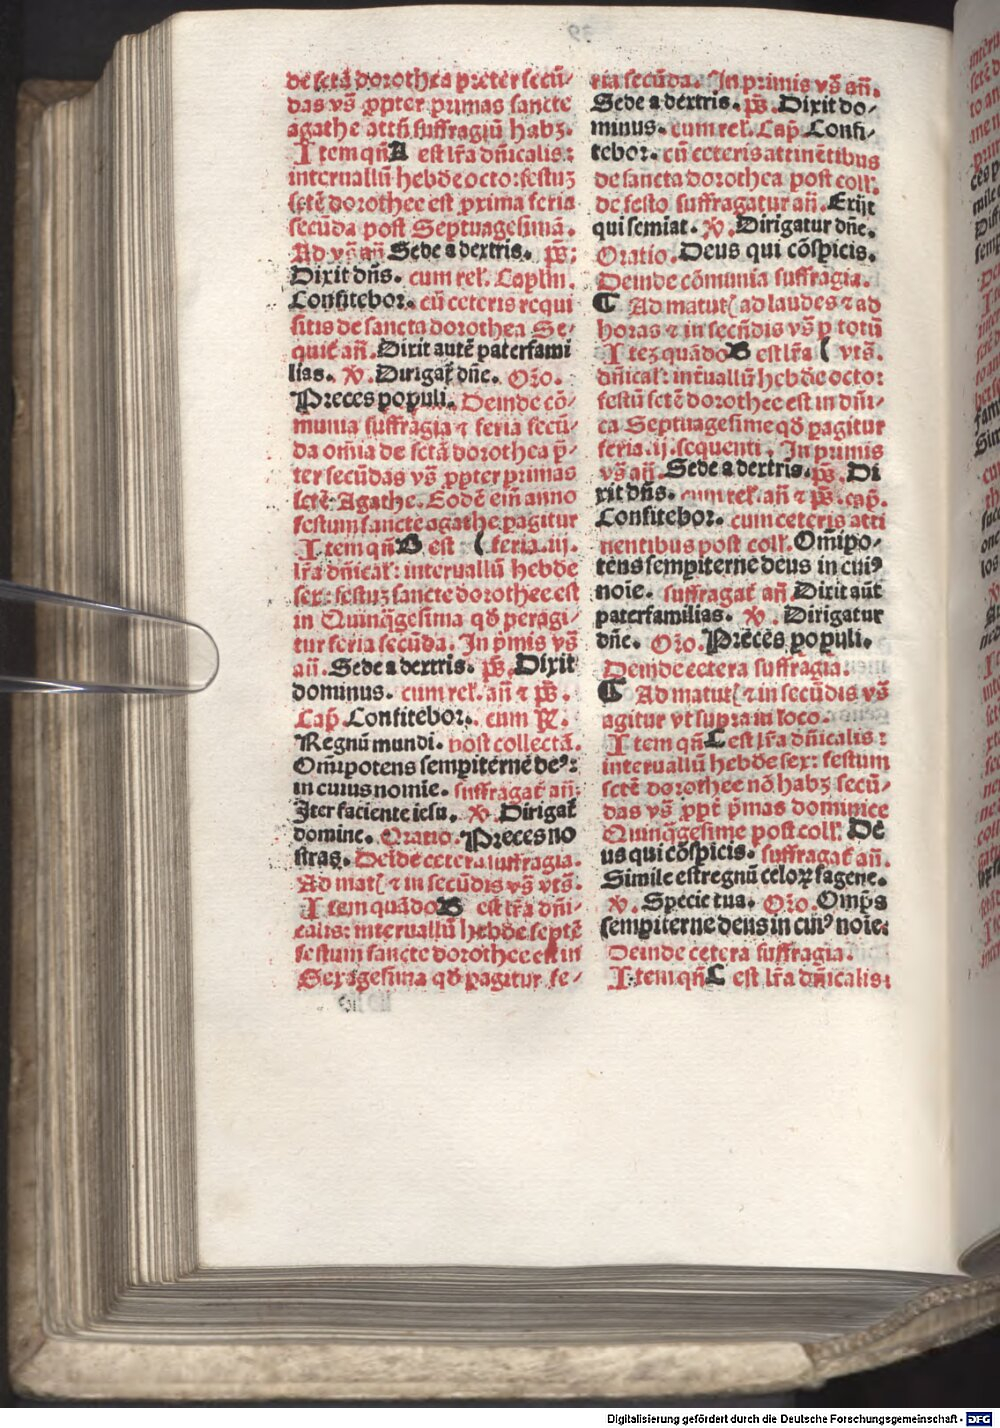 de sctā dorothea preter secū/
das vs̄ ꝓpter primas sancte
agathe attn̄ suffragiū habꝫ.
Item qn̄ A est lr̄a dn̄icalis:
interuallū hebde octo: festuꝫ
sctē dorothee est ꝓxima feria
secūda post Septuagesimā.
Ad vs̄ an̄ Sede a dextris. ps̄:
Dixit dn̄s. cum rel'. Capl'm.
Confitebor. cū ceteris requi
sitis de sancta dorothea Se-
quit̄ an̄. Dixit autē paterfami
lias. v̄. Dirigat̄ dn̄e. Or̄o.
Preces populi. Deinde cō/
munia suffragia ⁊ feria secū/
da om̄ia de sctā dorothea p̄/
ter secūdas vs̄ ꝓpter primas
sctē Agathe. Eodē em̄ anno
festum sancte agathe ꝑagitur
Item qn̄ B est ( feria .iij.
lr̄a dn̄ical': interuallū hebde
sex: festuꝫ sancte dorothee est
in Quinq̄gesima qḋ peragi/
tur feria secūda. In p̄mis vs̄
an̄. Sede a dextris. ps̄. Dixit
dominus. cum rel'. an̄ ⁊ ps̄.
Cap̄. Confitebor. cum ℟.
Regnū mundi. post collectā.
Om̄ipotens sempiterne deꝰ:
in cuius nomie. suffragat̄ an̄:
Iter faciente iesu. v̄. Dirigat̄
domine. Oratio. Preces no
stras. Deīde cetera suffragia.
Ad mat( ⁊ in secūdis vs̄ vts̄.
Item quādo B est lr̄a dn̄i-
calis: interuallū hebde septē
festum sancte dorothee est in
Sexagesima qḋ ꝑagitur fe/
ria secūda. In primis vs̄ an̄.
Sede a dextris. ps̄. Dixit do/
minus. cum rel'. Cap̄. Confi/
tebor. cū ceteris attinētibus
de sancta dorothea post coll'.
de festo suffragatur an̄. Exijt
qui semiat. v̄. Dirigatur dn̄e.
Oratio. Deus qui cōspicis.
Deinde cōmunia suffragia.
¶ Ad matut( ad laudes ⁊ ad
horas ⁊ in secn̄dis vs̄ ꝑ totū
Iteꝫ quādo B est lr̄a ( vts̄.
dn̄ical': int̄uallū hebde octo:
festū sctē dorothee est in dn̄i/
ca Septuagesime qḋ ꝑagitur
feria .ij. sequenti. In primis
vs̄ an̄. Sede a dextris. ps̄. Di
xit dn̄s. cum rel'. an̄ ⁊ ps̄. cap̄.
Confitebor. cum ceteris atti
nentibus post coll'. Om̄ipo-
tens sempiterne deus in cuiꝰ
noīe. suffragat̄ an̄ Dixit aūt
paterfamilias. v̄. Dirigatur
dn̄e. Or̄o. Preces populi.
Deinde cetera suffragia.
¶ Ad matut( ⁊ in secūdis vs̄
agitur vt supra in loco.
Item qn̄ C est lr̄a dn̄icalis:
interuallū hebde sex: festum
sctē dorothee nō habꝫ secū/
das vs̄ ꝓpt̄ p̄mas dominice
Quinq̄gesime post coll'. De
us qui cōspicis. suffragat̄ an̄.
Simile est regnū celoꝝ sagene.
v̄. Specie tua. Or̄o. Omp̄s
sempiterne deus in cuiꝰ noīe:
Deinde cetera suffragia.
Item qn̄ C est lr̄a dn̄icalis:
Digitalisierung gefördert durch die Deutsche Forschungsgemeinschaft - DFG